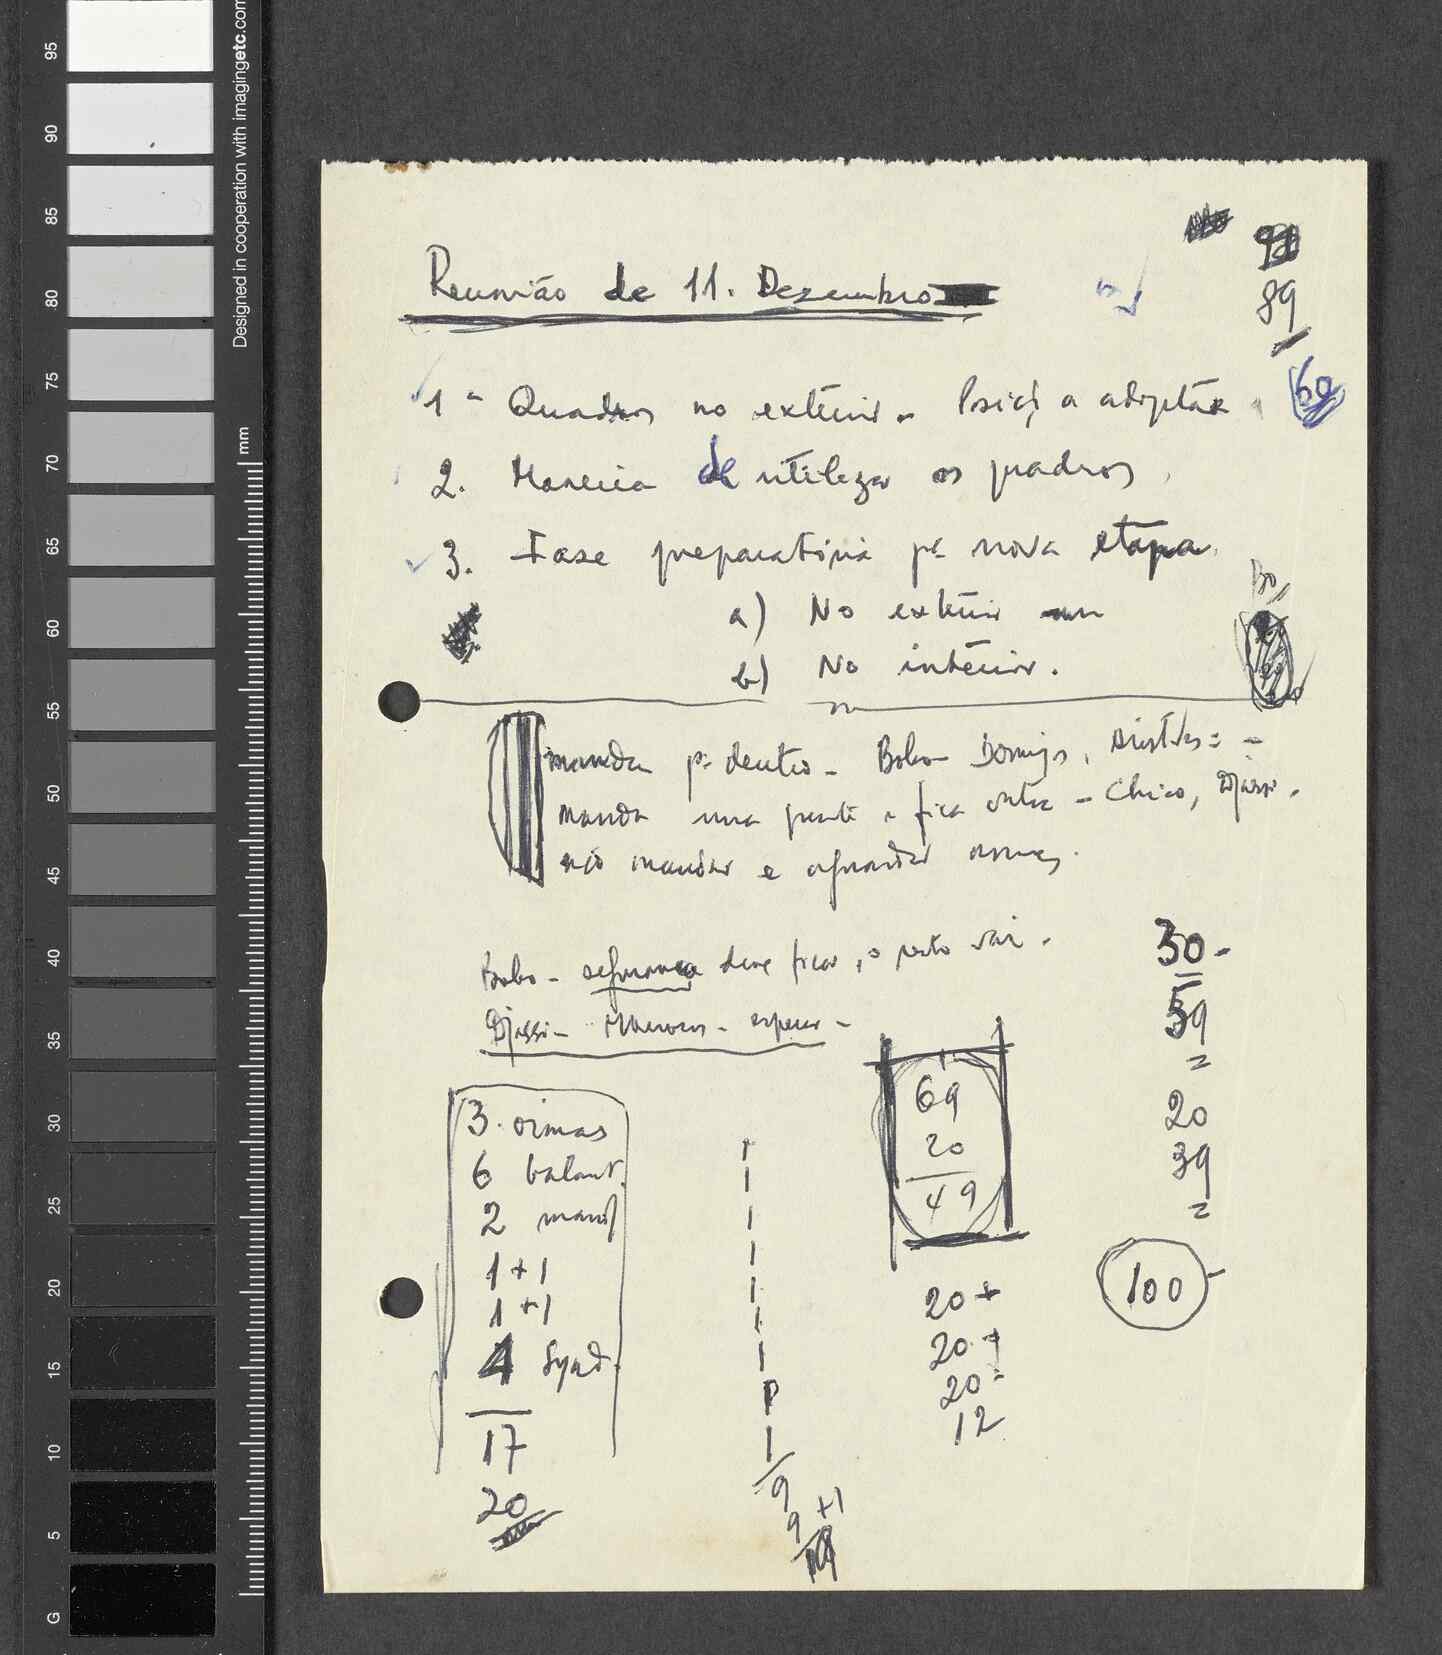 Designed in cooperation with imagingetc.com
mm
95
90
85
80
75
70
65
60
55
50
45
40
35
30
25
20
15
10
5
G
89
Reunião de 11. Dezembro
1 - Quadros no exterior - Posiç. a adoptar
60
2. Maneira de utilizar os quadros
3. Fase preparatória pa nova etapa
a) No exterior
b) No interior.
mandar pa dentro - Bobo - Domingos, Aristides =
mandar uma parte e fica outra - Chico, Djassi.
não mandar e aguardar
Bobo - segurança deve ficar, o resto vai.
30 -
Djassi - - esperar -
59
=
3. oimas
69
20
6 balant.
20
39
2 mand
49
=
1+1
1+1
20 +
100
4 Syad.
20
20
17
12
20
9
9 +1